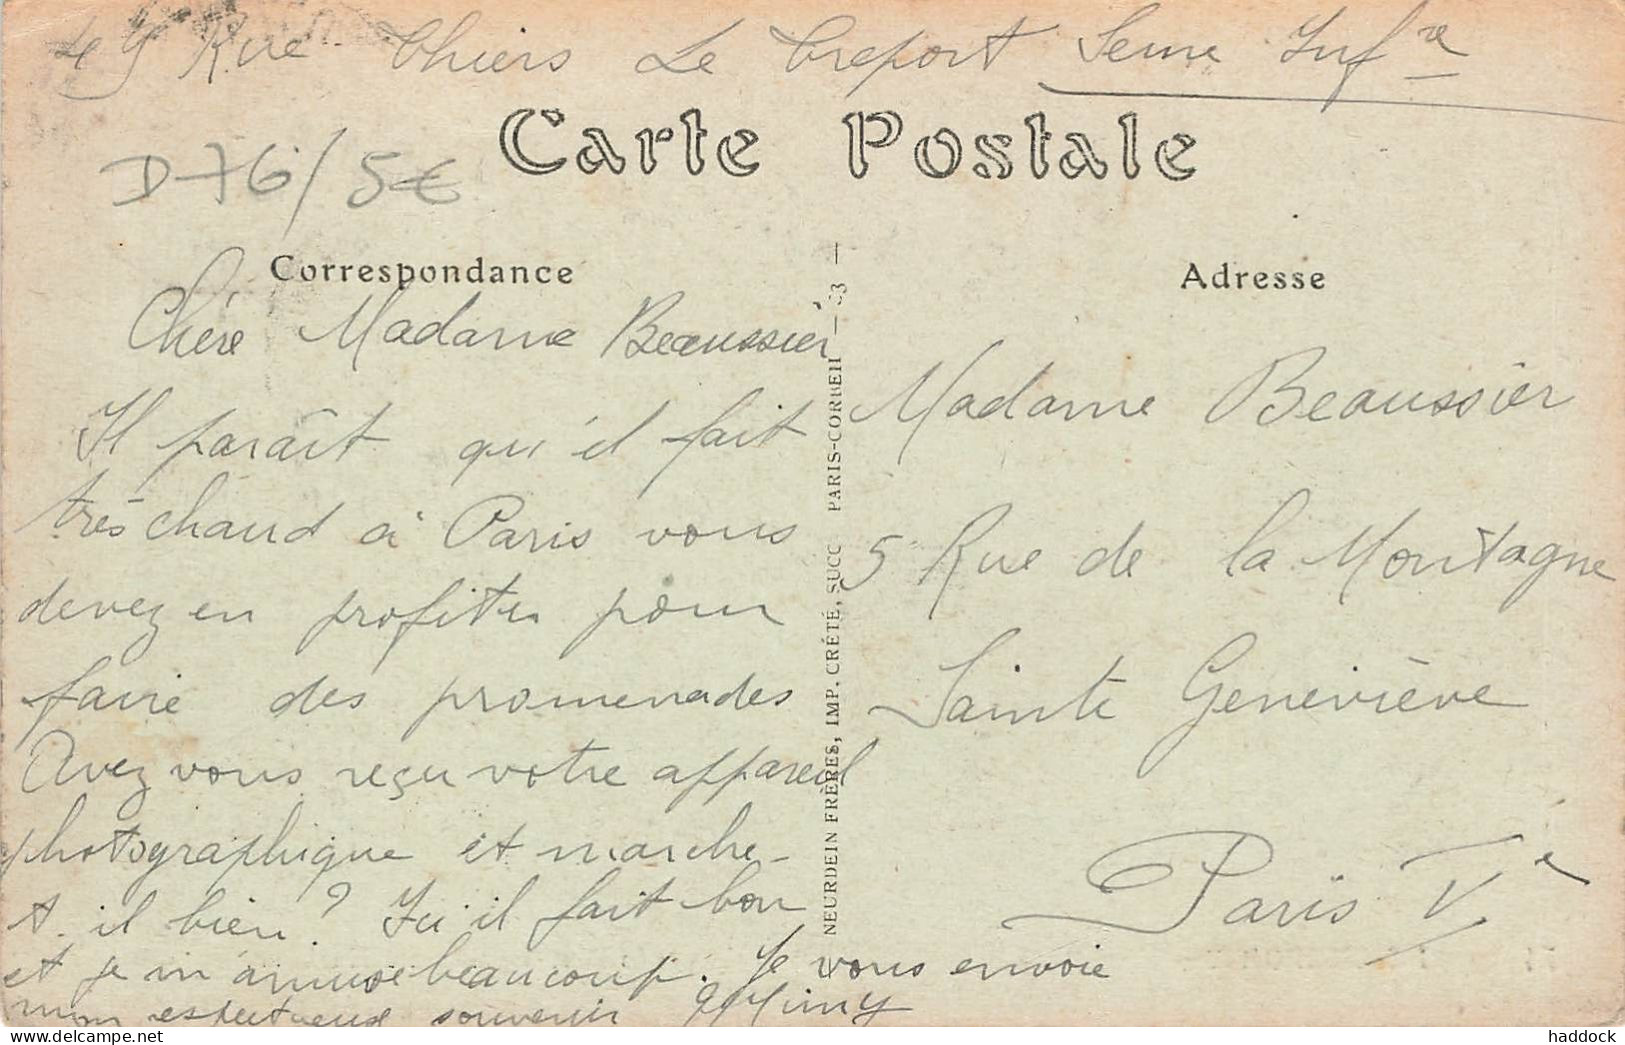 49 Rue Thiers Le Treport Seine Infre
Carte Postale
D76/5€
Correspondance
Chére Madame Beaussier
Il paraît qu'il fait
très chaud à Paris vous
devez en profiter pour
faire des promenades
Avez vous reçu votre appareil
photographique et marche-
t-il bien? Ici il fait bon
et je m'amuse beaucoup. Je vous envoie
mon respectueux souvenir Mimy
NEURDEIN FRÈRES, IMP. CRÉTÉ, SUCC PARIS-CORBEIL
Adresse
Madame Beaussier
5 Rue de la Montagne
Sainte Geneviève
Paris Ve
haddock